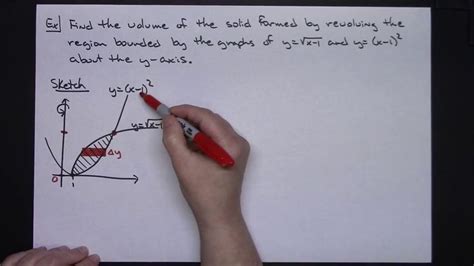 Ex) Find the volume of the solid formed by revolving the
region bounded by the graphs of y=√x-1 and y=(x-1)²
about the y-axis.
Sketch
y=(x-1)²
y=√x-1
Δy
0
1